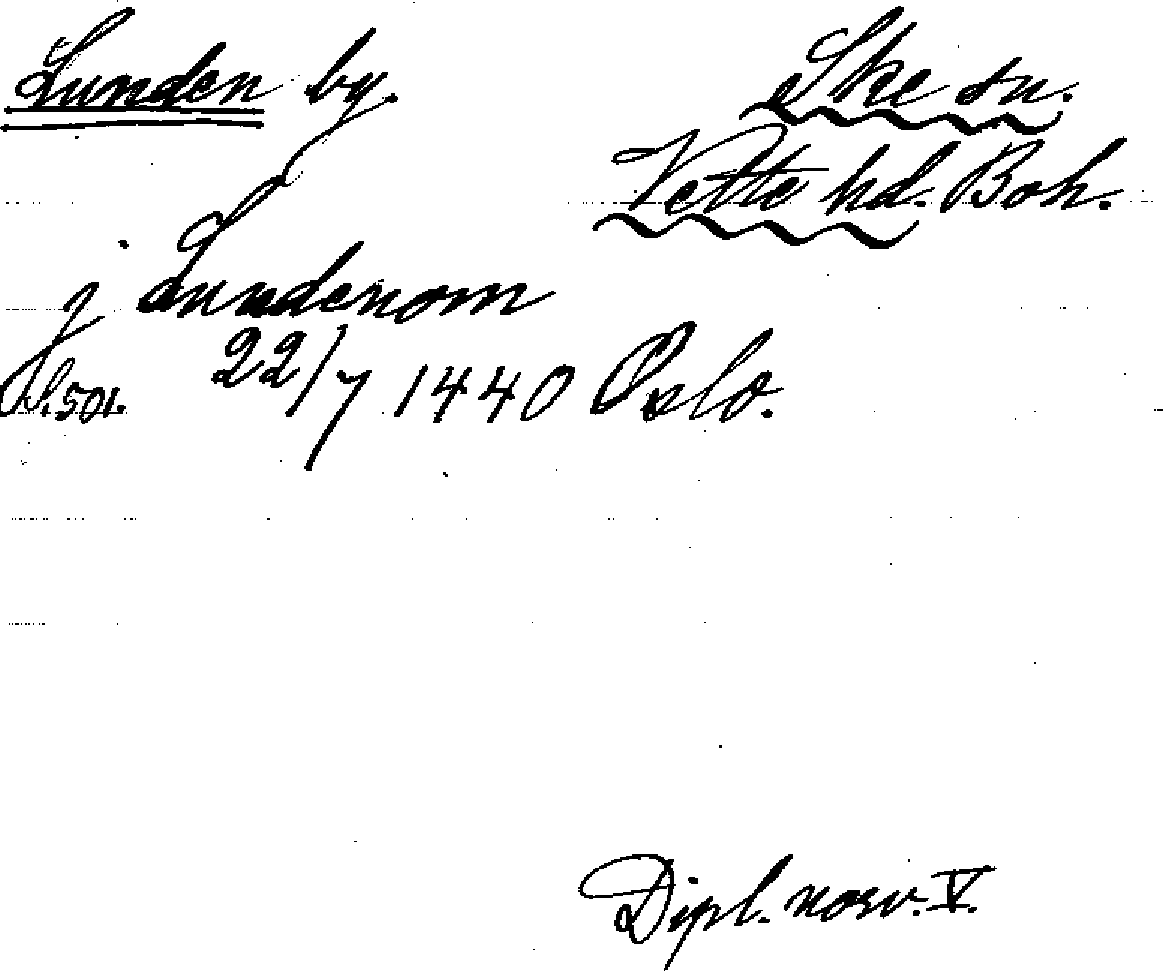 Lunden by.
Ske sn.
Vette hd. Boh.
j Lundenom
S. 501. 22/7 1440 Oslo.
Dipl. norv. V.